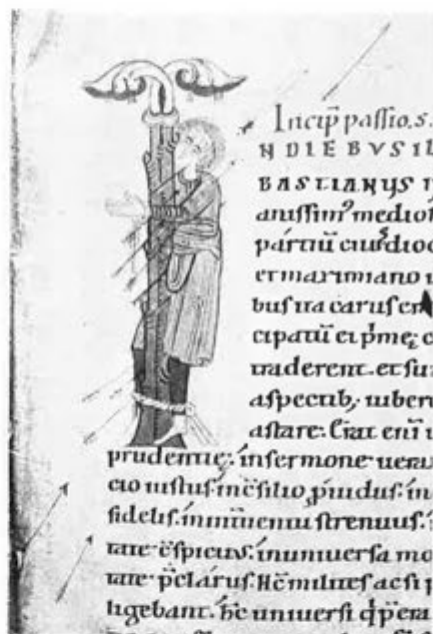 Incip̄ passio. s.
N DIEBVS IL
BASTIANUS
anissim᷒ mediol
partiū eiusdē
et maximiano
bus ita carus er
cipatū ei p̄me
traderent. et su
aspectib; iuber
astare. Erat eni u
prudentię. in sermone uerax
cio iustus. in c̄silio p̄uidus. in
fidelis. in strenuus.
tate c̄spicuus. in uniuersa mo
tate p̄clarus. Hc̄ milites ac si p
ligebant. hc̄ uniuersi q̄ p̄era